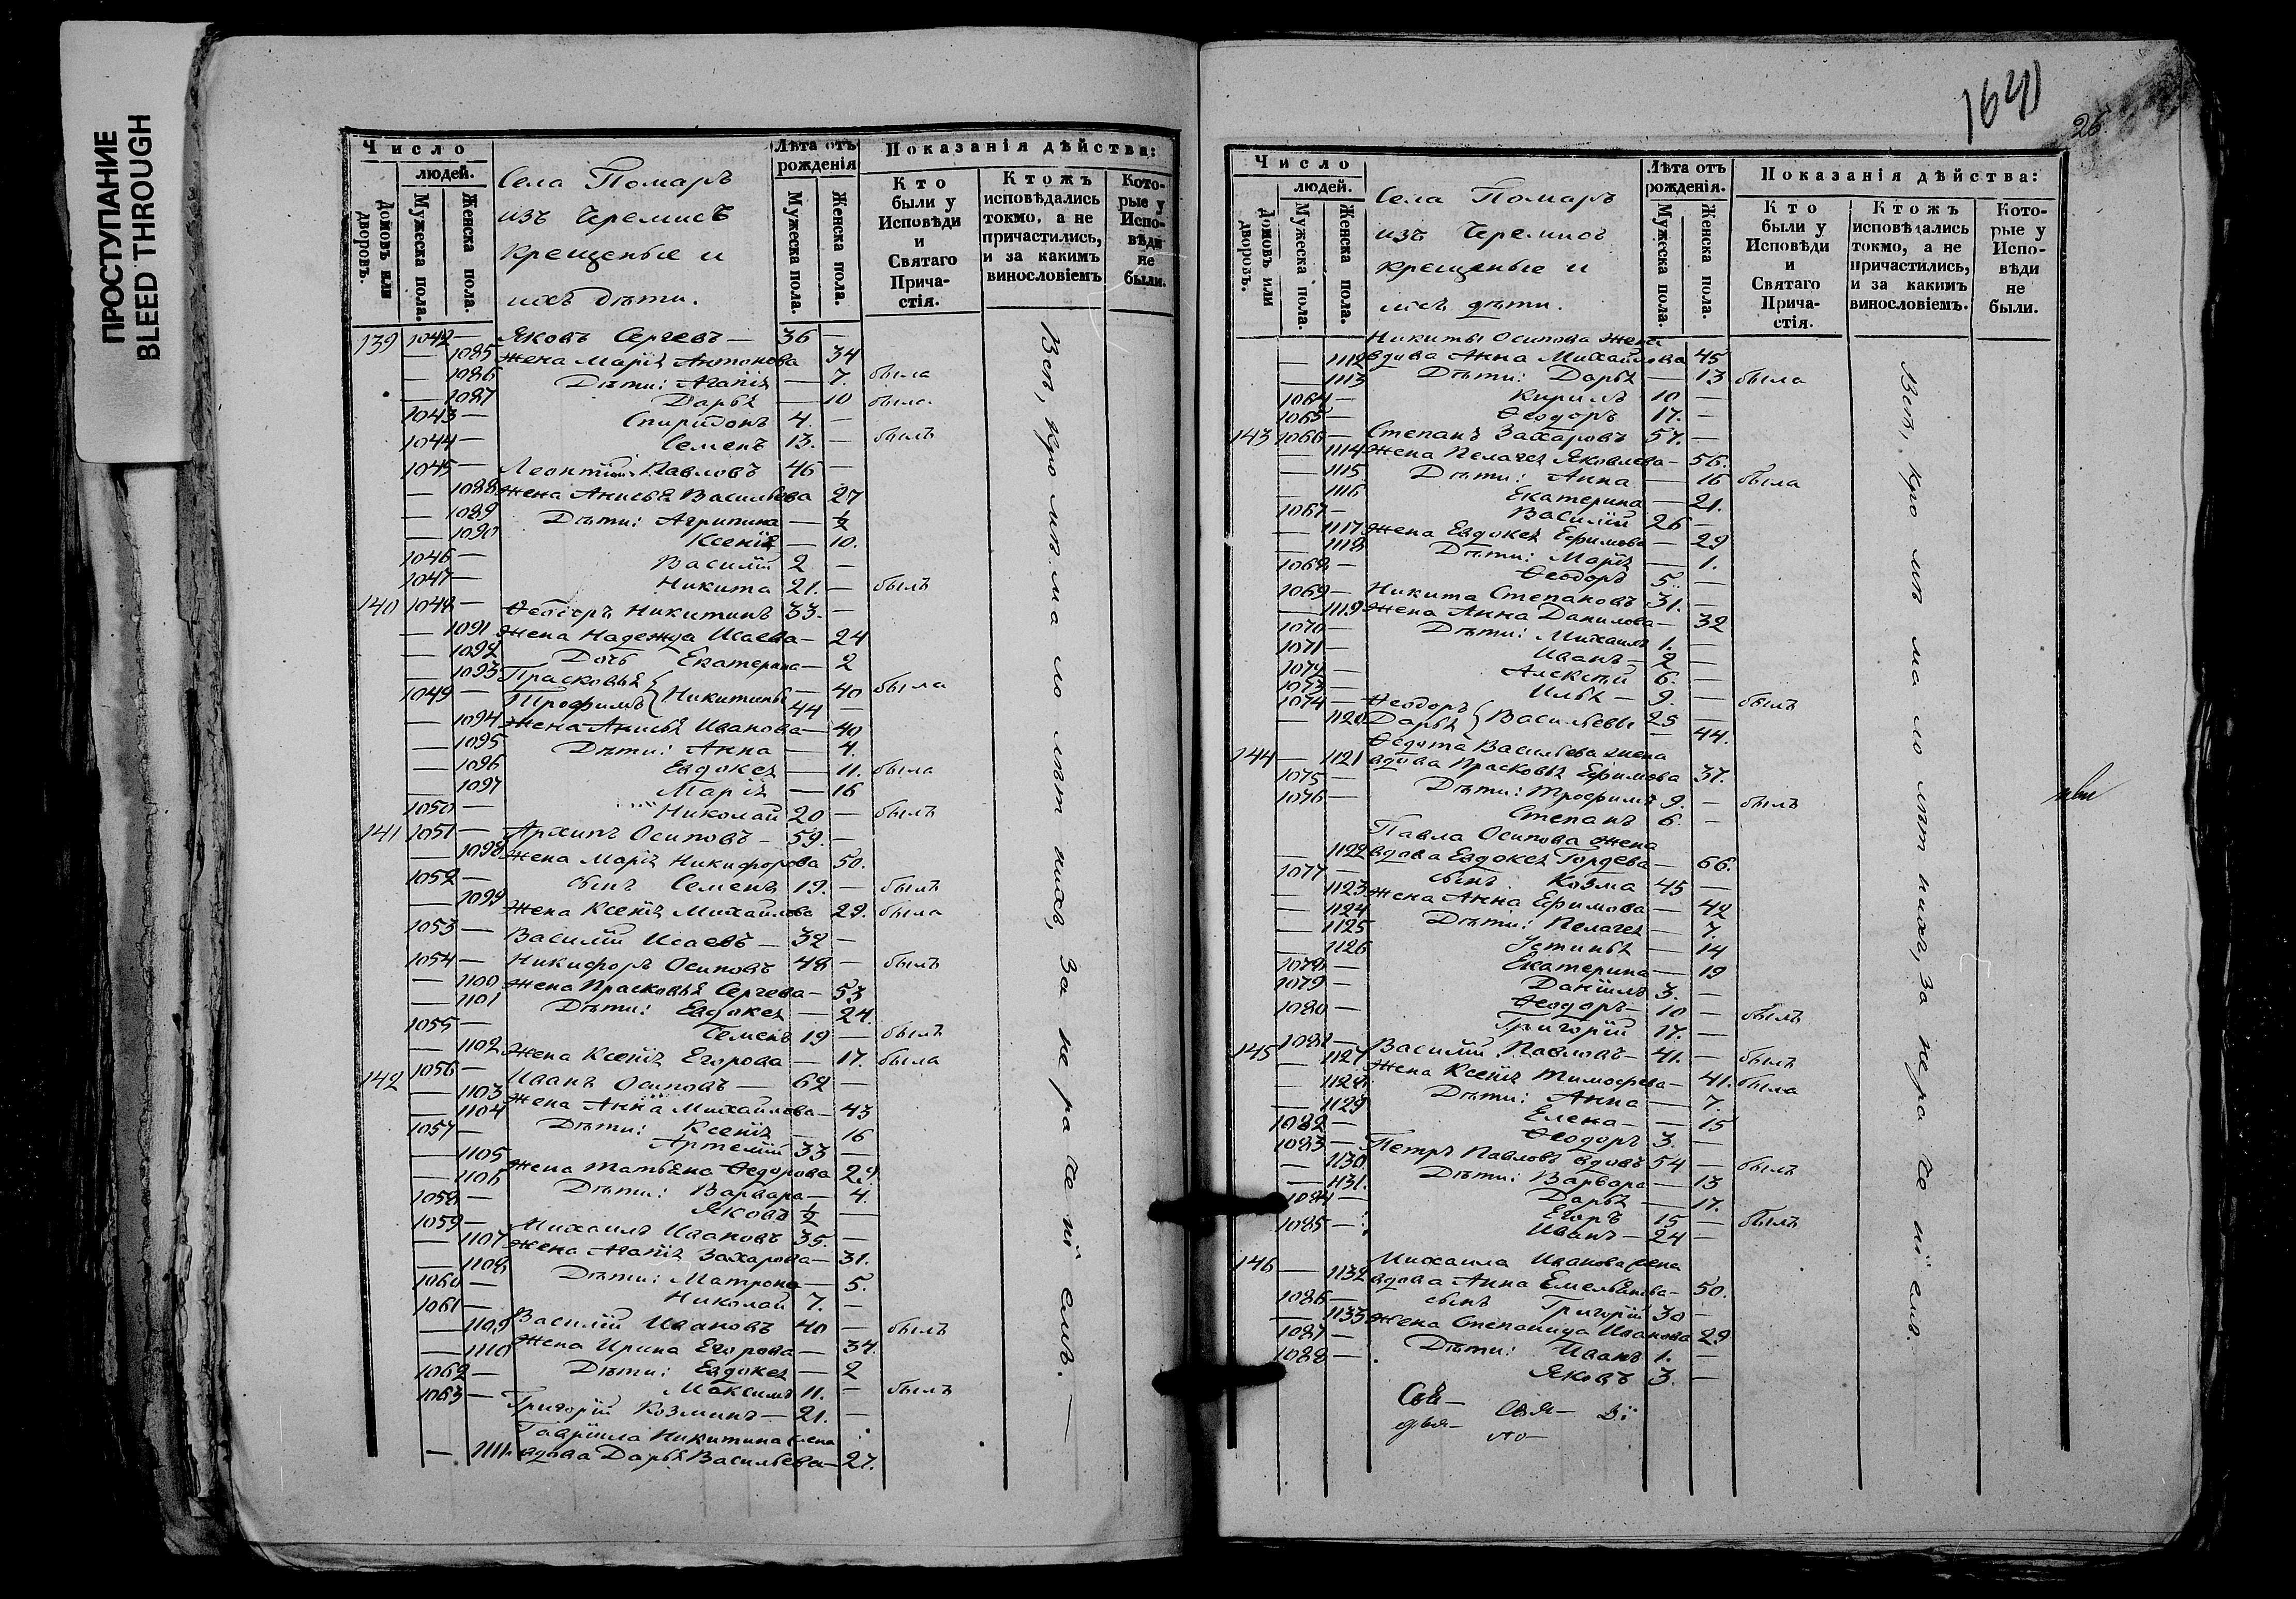 ПРОСТУПАНИЕ
BLEED THROUGH
Число
людей.
Домовъ или дворовъ.
Мужеска пола.
Женска пола.
Села Помаръ
изъ Черемисъ
крещеные и
ихъ дѣти.
Лѣта отъ рожденія
Мужеска пола.
Женска пола.
Показанія дѣйства:
Кто были у Исповѣди и Святаго Причастія.
Ктожъ исповѣдались токмо, а не причастились, и за какимъ винословіемъ
Которые у Исповѣди не были.
139 1042 — Яковъ Сергеевъ — 36 —
— 1085 жена Марія Антонова 34
— 1086 Дѣти: Агапія — 7. была
— 1087 Дарья — 10 была
1043 — Спиридонъ 4. —
1044 — Семенъ 13. — былъ
1045 — Леонтій Павловъ 46 —
— 1088 жена Анисья Васильева 27
— 1089 Дѣти: Агрипина — ½
— 1090 Ксенія — 10.
1046 — Василій 2 —
1047 — Никита 21. — былъ
140 1048 — Ѳеодоръ Никитинъ 33. —
— 1091 жена Надежда Исаева — 24
— 1092 Дочь Екатерина — 2
— 1093 Прасковья } Никитины — 40 была
1049 — Трофимъ 44 —
— 1094 жена Анисья Иванова — 40
— 1095 Дѣти: Анна — 4.
— 1096 Евдокея — 11. была
— 1097 Марія — 16
1050 — Николай 20 — былъ
141 1051 — Архипъ Осиповъ — 59. —
— 1098 жена Марія Никифорова 50.
1052 — сынъ Семенъ 19. — былъ
— 1099 жена Ксенія Михайлова 29. была
1053 — Василій Исаевъ — 32 —
1054 — Никифоръ Осиповъ 48 — былъ
— 1100 жена Прасковья Сергеева — 53
— 1101 Дѣти: Евдокея — 24.
1055 — Семенъ 19 — былъ
— 1102 жена Ксенія Егорова — 17. была
142 1056 — Иванъ Осиповъ — 62 —
— 1103 жена Анна Михайлова — 43
— 1104 Дѣти: Ксенія — 16
1057 — Артемій 33 —
— 1105 жена Татьяна Ѳедорова 29.
— 1106 Дѣти: Варвара — 4.
1058 — Яковъ ½ —
1059 — Михаилъ Ивановъ 35. —
— 1107 жена Агапія Захарова — 31.
— 1108 Дѣти: Матрона — 5.
1060 — Николай 7. —
1061 — Василій Ивановъ 40 — былъ
— 1109 жена Ирина Егорова — 34.
— 1110 Дѣти: Евдокея — 2
1062 — Максимъ 11. — былъ
1063 — Григорій Козминъ — 21. —
Гавріила Никитина жена
— 1111. вдова Дарья Васильева — 27.
Всѣ, кромѣ малолѣтнихъ, за нераченіемъ. —
1641
26
Число
людей.
Домовъ или дворовъ.
Мужеска пола.
Женска пола.
Села Помаръ
изъ Черемисъ
крещеные и
ихъ дѣти.
Лѣта отъ рожденія.
Мужеска пола.
Женска пола.
Показанія дѣйства:
Кто были у Исповѣди и Святаго Причастія.
Ктожъ исповѣдались токмо, а не причастились, и за какимъ винословіемъ.
Которые у Исповѣди не были.
Никиты Осипова жена
— 1112 вдова Анна Михайлова 45
— 1113 Дѣти: Дарья — 13 была
1064 — Кирилъ 10 —
1065 — Ѳеодоръ 17. —
143 1066 — Степанъ Захаровъ 57. —
— 1114 жена Пелагея Яковлева — 56.
— 1115 Дѣти: Анна — 16 была
— 1116 Екатерина — 21.
1067 — Василій 26 —
— 1117 жена Евдокея Ефимова — 29
— 1118 Дѣти: Марія — 1.
1068 — Ѳеодоръ 5. —
1069 — Никита Степановъ 31. —
— 1119 жена Анна Данилова — 32
1070 — Дѣти: Михаилъ 1. —
1071 — Иванъ — 2 —
1072 — Алексѣй 6. —
1073 — Илья — 9. —
1074 — Ѳеодоръ } Васильевы 25 — былъ
— 1120 Дарья — 44.
Ѳедота Васильева жена
144 — 1121 вдова Прасковья Ефимова 37.
1075 — Дѣти: Трофимъ 9. —
1076 — Степанъ 6. — былъ
Павла Осипова жена
— 1122 вдова Евдокея Гордеева — 66.
1077 — сынъ Козма 45 —
— 1123 жена Анна Ефимова — 42
— 1124 Дѣти: Пелагея — 7.
— 1125 Устинья — 14
— 1126 Екатерина — 19
1078 — Даніилъ 3. —
1079 — Ѳеодоръ — 10 —
1080 — Григорій 17. — былъ
145 1081 — Василій Павловъ — 41. — былъ
— 1127 жена Ксенія Тимофеева — 41. была
— 1128 Дѣти: Анна — 7.
— 1129 Елена — 15
1082 — Ѳеодоръ 3. —
1083 — Петръ Павловъ вдовъ 54 — былъ
— 1130 Дѣти: Варвара — 13
— 1131. Дарья — 17.
1084 — Егоръ 15 — былъ
1085 — Иванъ — 24 —
146 Михаила Иванова жена
— 1132 вдова Анна Емельянова — 50.
1086 — сынъ Григорій 30 —
— 1133 жена Степанида Иванова 29
1087 — Дѣти: Иванъ 1. —
1088 — Яковъ 3. —
Всѣ, кромѣ малолѣтнихъ, за нераченіемъ